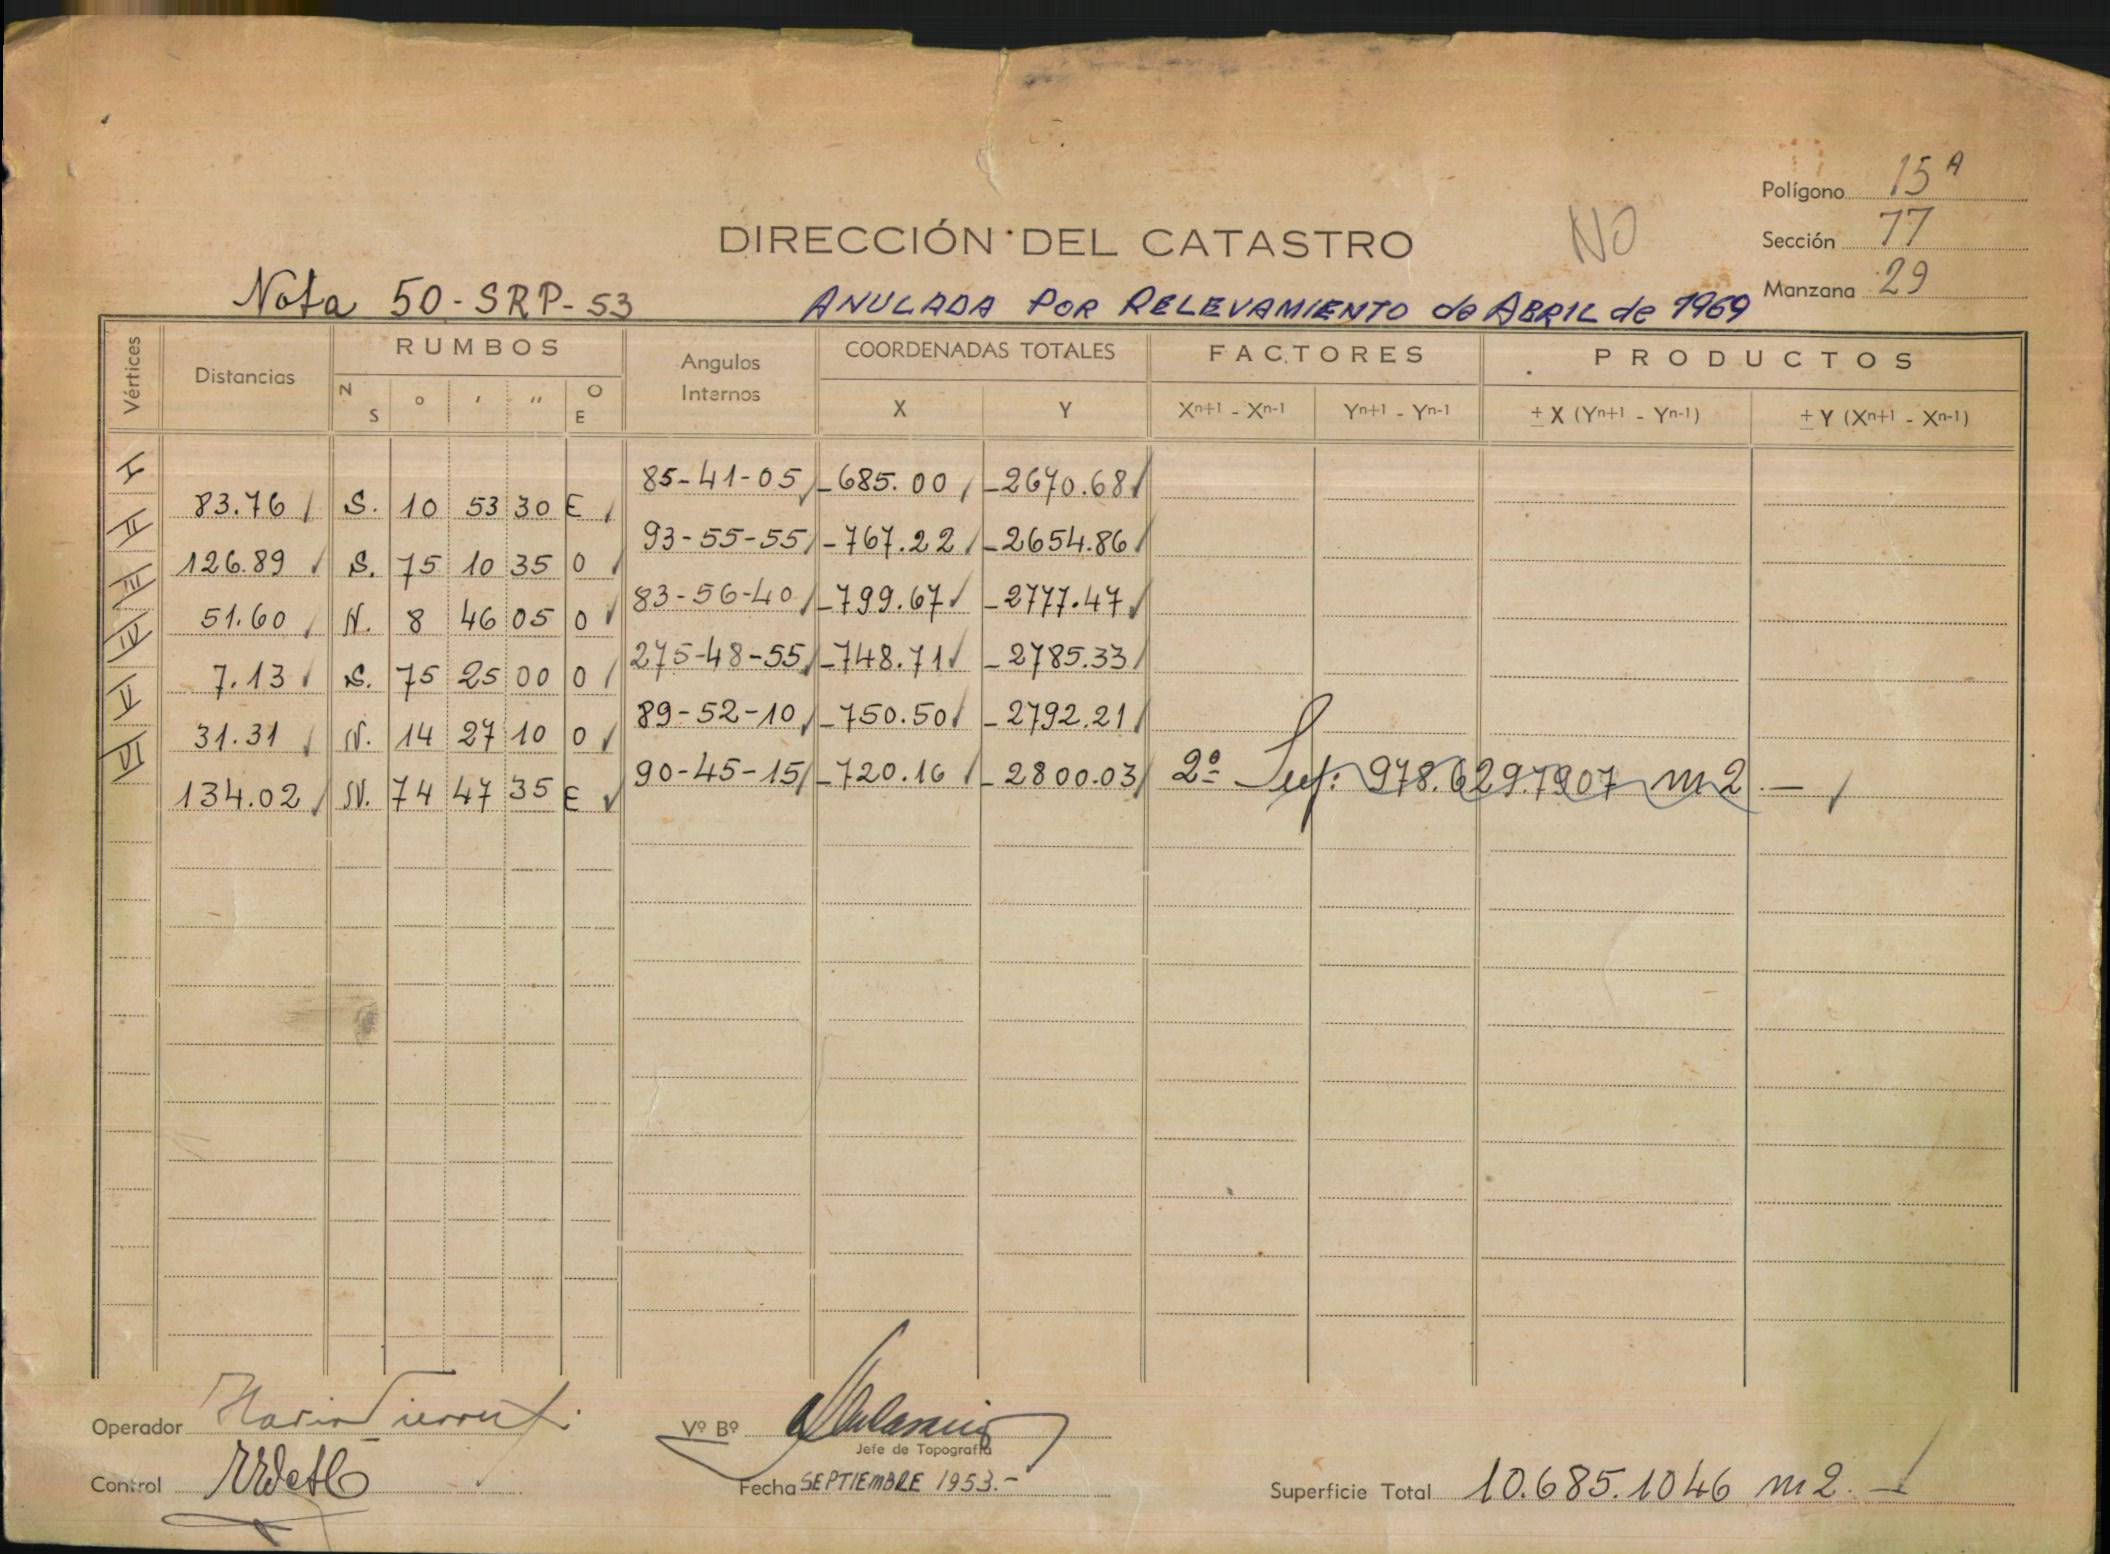 Polígono 15 A
DIRECCIÓN DEL CATASTRO
NO
Sección 77
Manzana 29
Nota 50-SRP-53
ANULADA POR RELEVAMIENTO de ABRIL de 1969
Vértices Distancias RUMBOS Angulos Internos COORDENADAS TOTALES FACTORES PRODUCTOS
N S ° ' " O E X Y Xn+1 - Xn-1 Yn+1 - Yn-1 ± X (Yn+1 - Yn-1) ± Y (Xn+1 - Xn-1)
I 85-41-05 -685.00 -2670.68
83.76 S. 10 53 30 E
II 93-55-55 -767.22 -2654.86
126.89 S. 75 10 35 O
III 83-56-40 -799.67 -2777.47
51.60 N. 8 46 05 O
IV 275-48-55 -748.71 -2785.33
7.13 S. 75 25 00 O
V 89-52-10 -750.50 -2792.21
31.31 N. 14 27 10 O
VI 90-45-15 -720.16 -2800.03 2º Sup: 978.6297907 m2.-
134.02 N. 74 47 35 E
Operador
Vº Bº
Jefe de Topografía
Control
Fecha SEPTIEMBRE 1953.-
Superficie Total 10.685.1046 m2.-